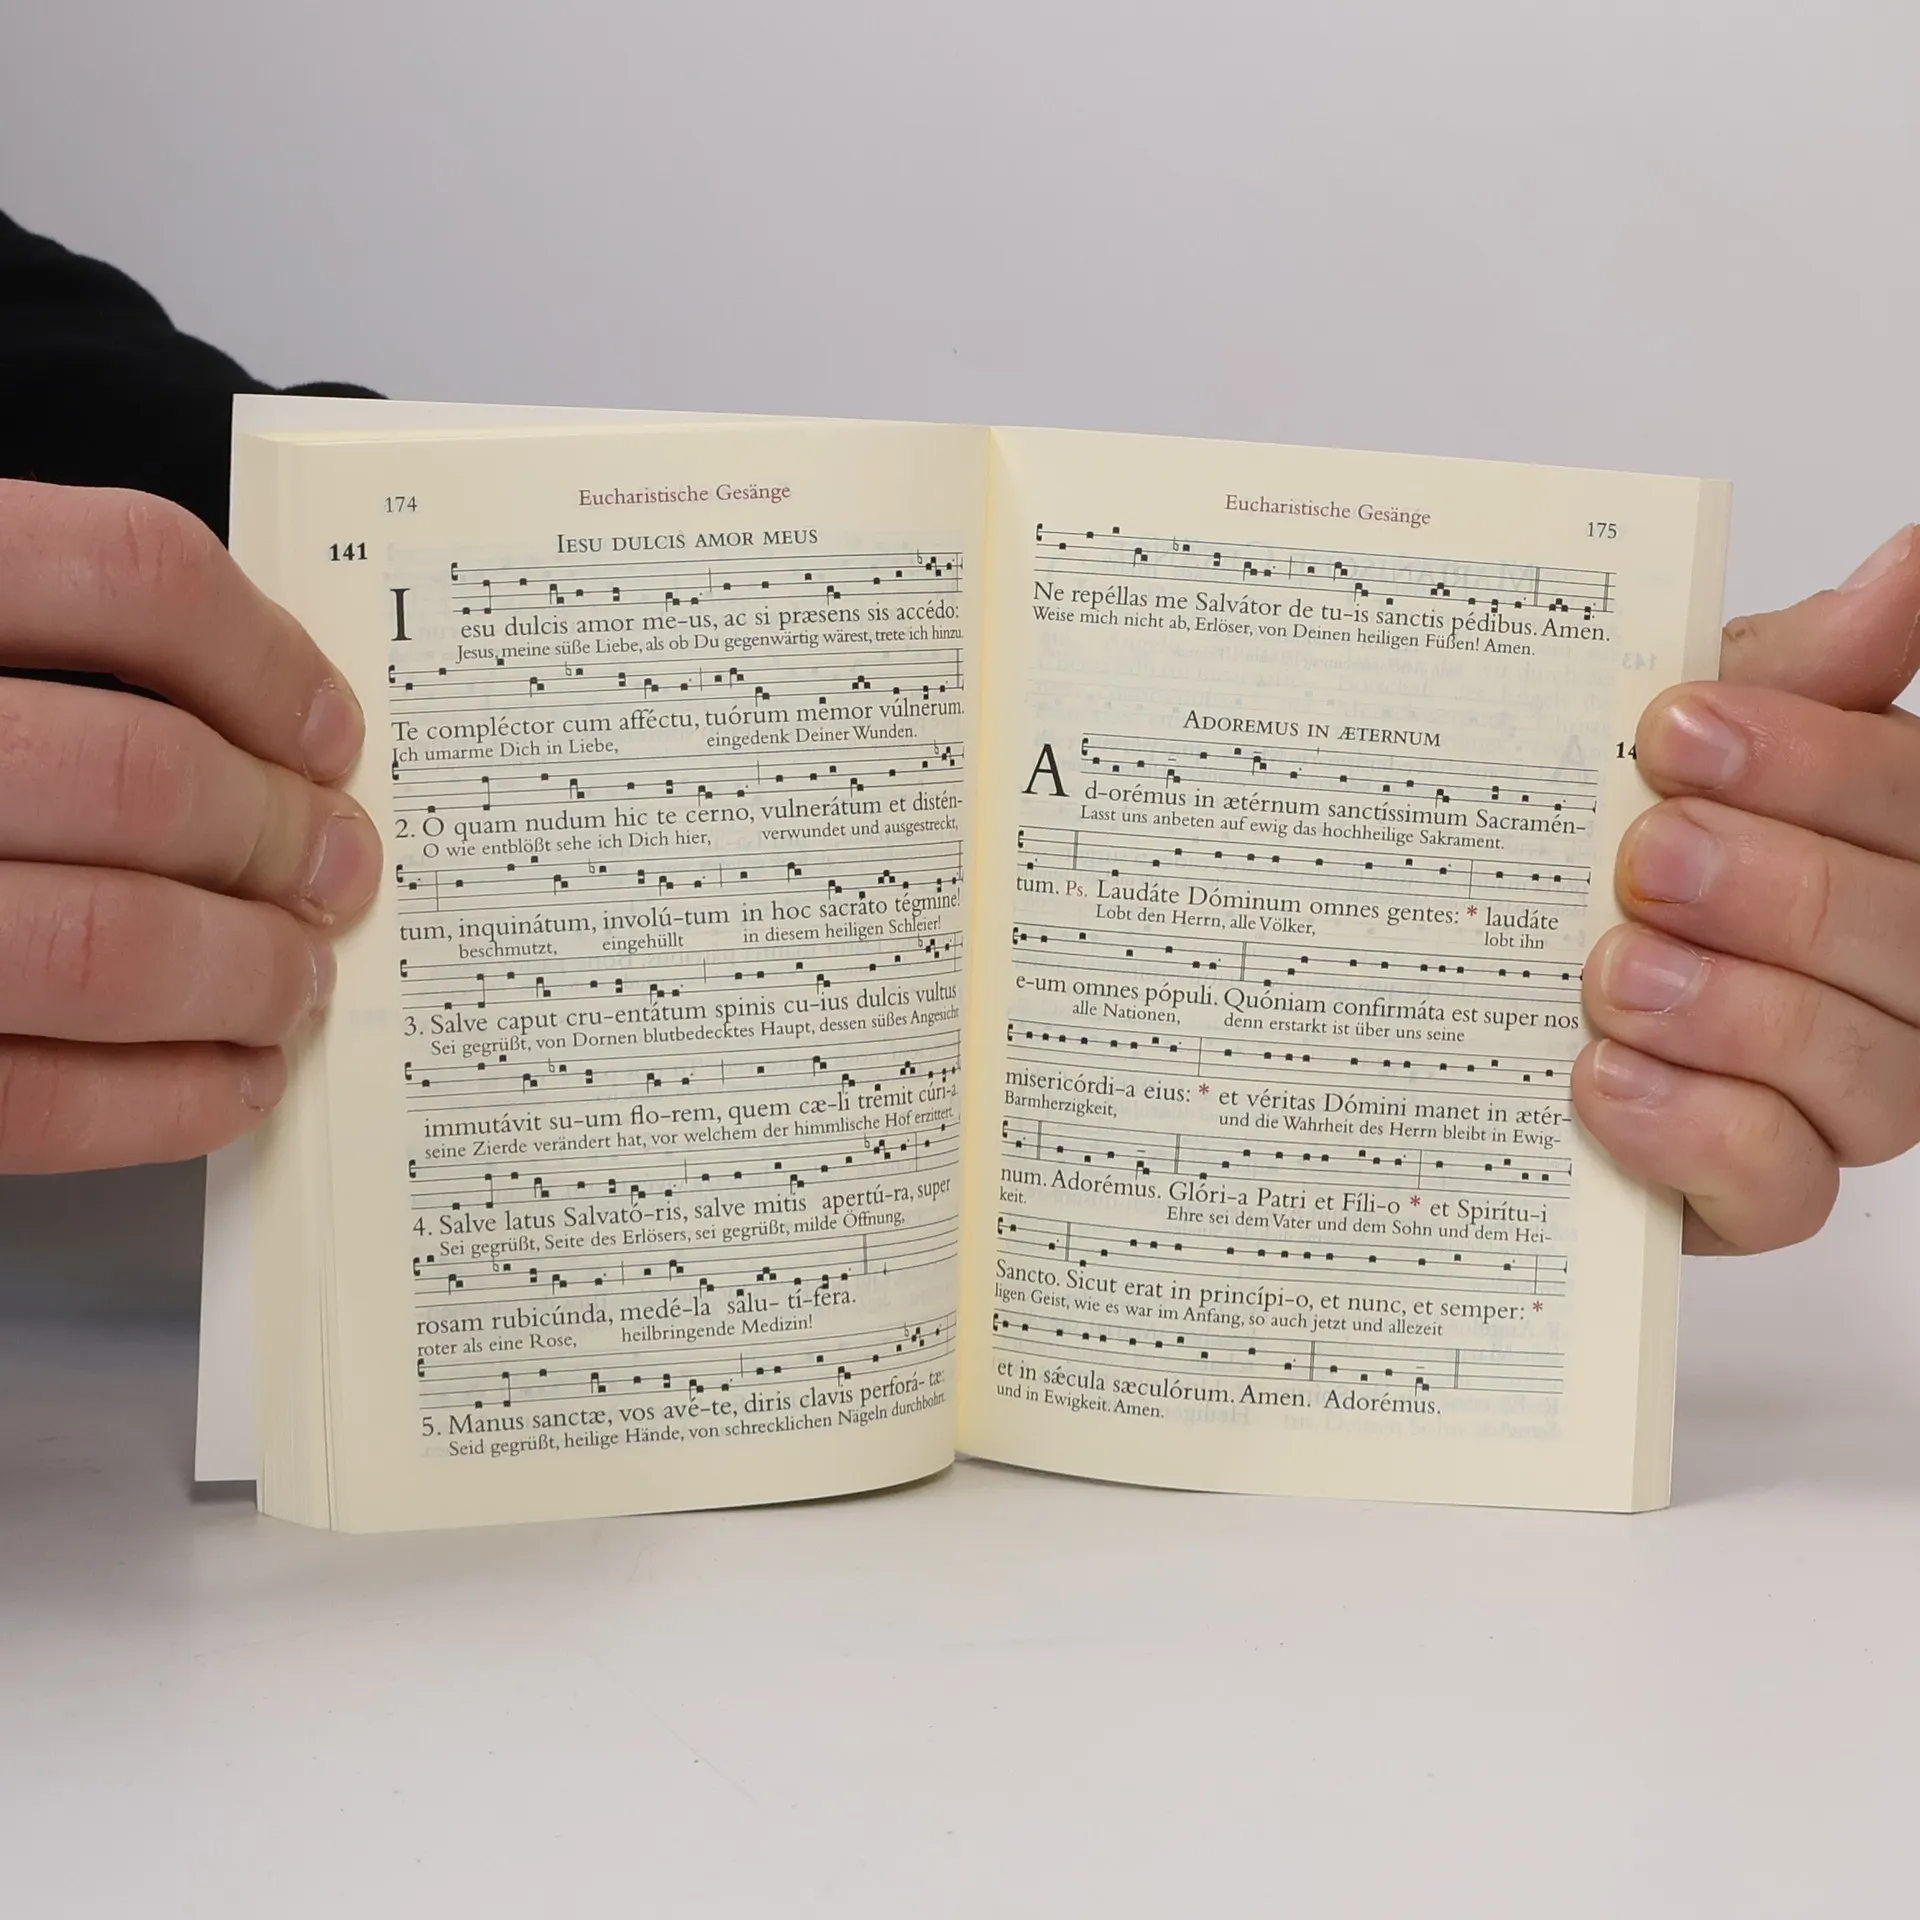 174
Eucharistische Gesänge
141
IESU DULCIS AMOR MEUS
Iesu dulcis amor me-us, ac si præsens sis accédo:
Jesus, meine süße Liebe, als ob Du gegenwärtig wärest, trete ich hinzu.
Te compléctor cum afféctu, tuórum memor vúlnerum.
Ich umarme Dich in Liebe, eingedenk Deiner Wunden.
2. O quam nudum hic te cerno, vulnerátum et distén-
O wie entblößt sehe ich Dich hier, verwundet und ausgestreckt,
tum, inquinátum, involú-tum in hoc sacráto tégmine!
beschmutzt, eingehüllt in diesem heiligen Schleier!
3. Salve caput cru-entátum spinis cu-ius dulcis vultus
Sei gegrüßt, von Dornen blutbedecktes Haupt, dessen süßes Angesicht
immutávit su-um flo-rem, quem cæ-li tremit cúri-a.
seine Zierde verändert hat, vor welchem der himmlische Hof erzittert.
4. Salve latus Salvató-ris, salve mitis apertú-ra, super
Sei gegrüßt, Seite des Erlösers, sei gegrüßt, milde Öffnung,
rosam rubicúnda, medé-la salu- tí-fera.
roter als eine Rose, heilbringende Medizin!
5. Manus sanctæ, vos avé-te, diris clavis perforá- tæ:
Seid gegrüßt, heilige Hände, von schrecklichen Nägeln durchbohrt.
Eucharistische Gesänge
175
Ne repéllas me Salvátor de tu-is sanctis pédibus. Amen.
Weise mich nicht ab, Erlöser, von Deinen heiligen Füßen! Amen.
ADOREMUS IN ÆTERNUM
14
Ad-orémus in ætérnum sanctíssimum Sacramén-
Lasst uns anbeten auf ewig das hochheilige Sakrament.
tum. Ps. Laudáte Dóminum omnes gentes: * laudáte
Lobt den Herrn, alle Völker, lobt ihn
e-um omnes pópuli. Quóniam confirmáta est super nos
alle Nationen, denn erstarkt ist über uns seine
misericórdi-a eius: * et véritas Dómini manet in ætér-
Barmherzigkeit, und die Wahrheit des Herrn bleibt in Ewig-
num. Adorémus. Glóri-a Patri et Fíli-o * et Spirítu-i
keit. Ehre sei dem Vater und dem Sohn und dem Hei-
Sancto. Sicut erat in princípi-o, et nunc, et semper: *
ligen Geist, wie es war im Anfang, so auch jetzt und allezeit
et in sǽcula sæculórum. Amen. Adorémus.
und in Ewigkeit. Amen.